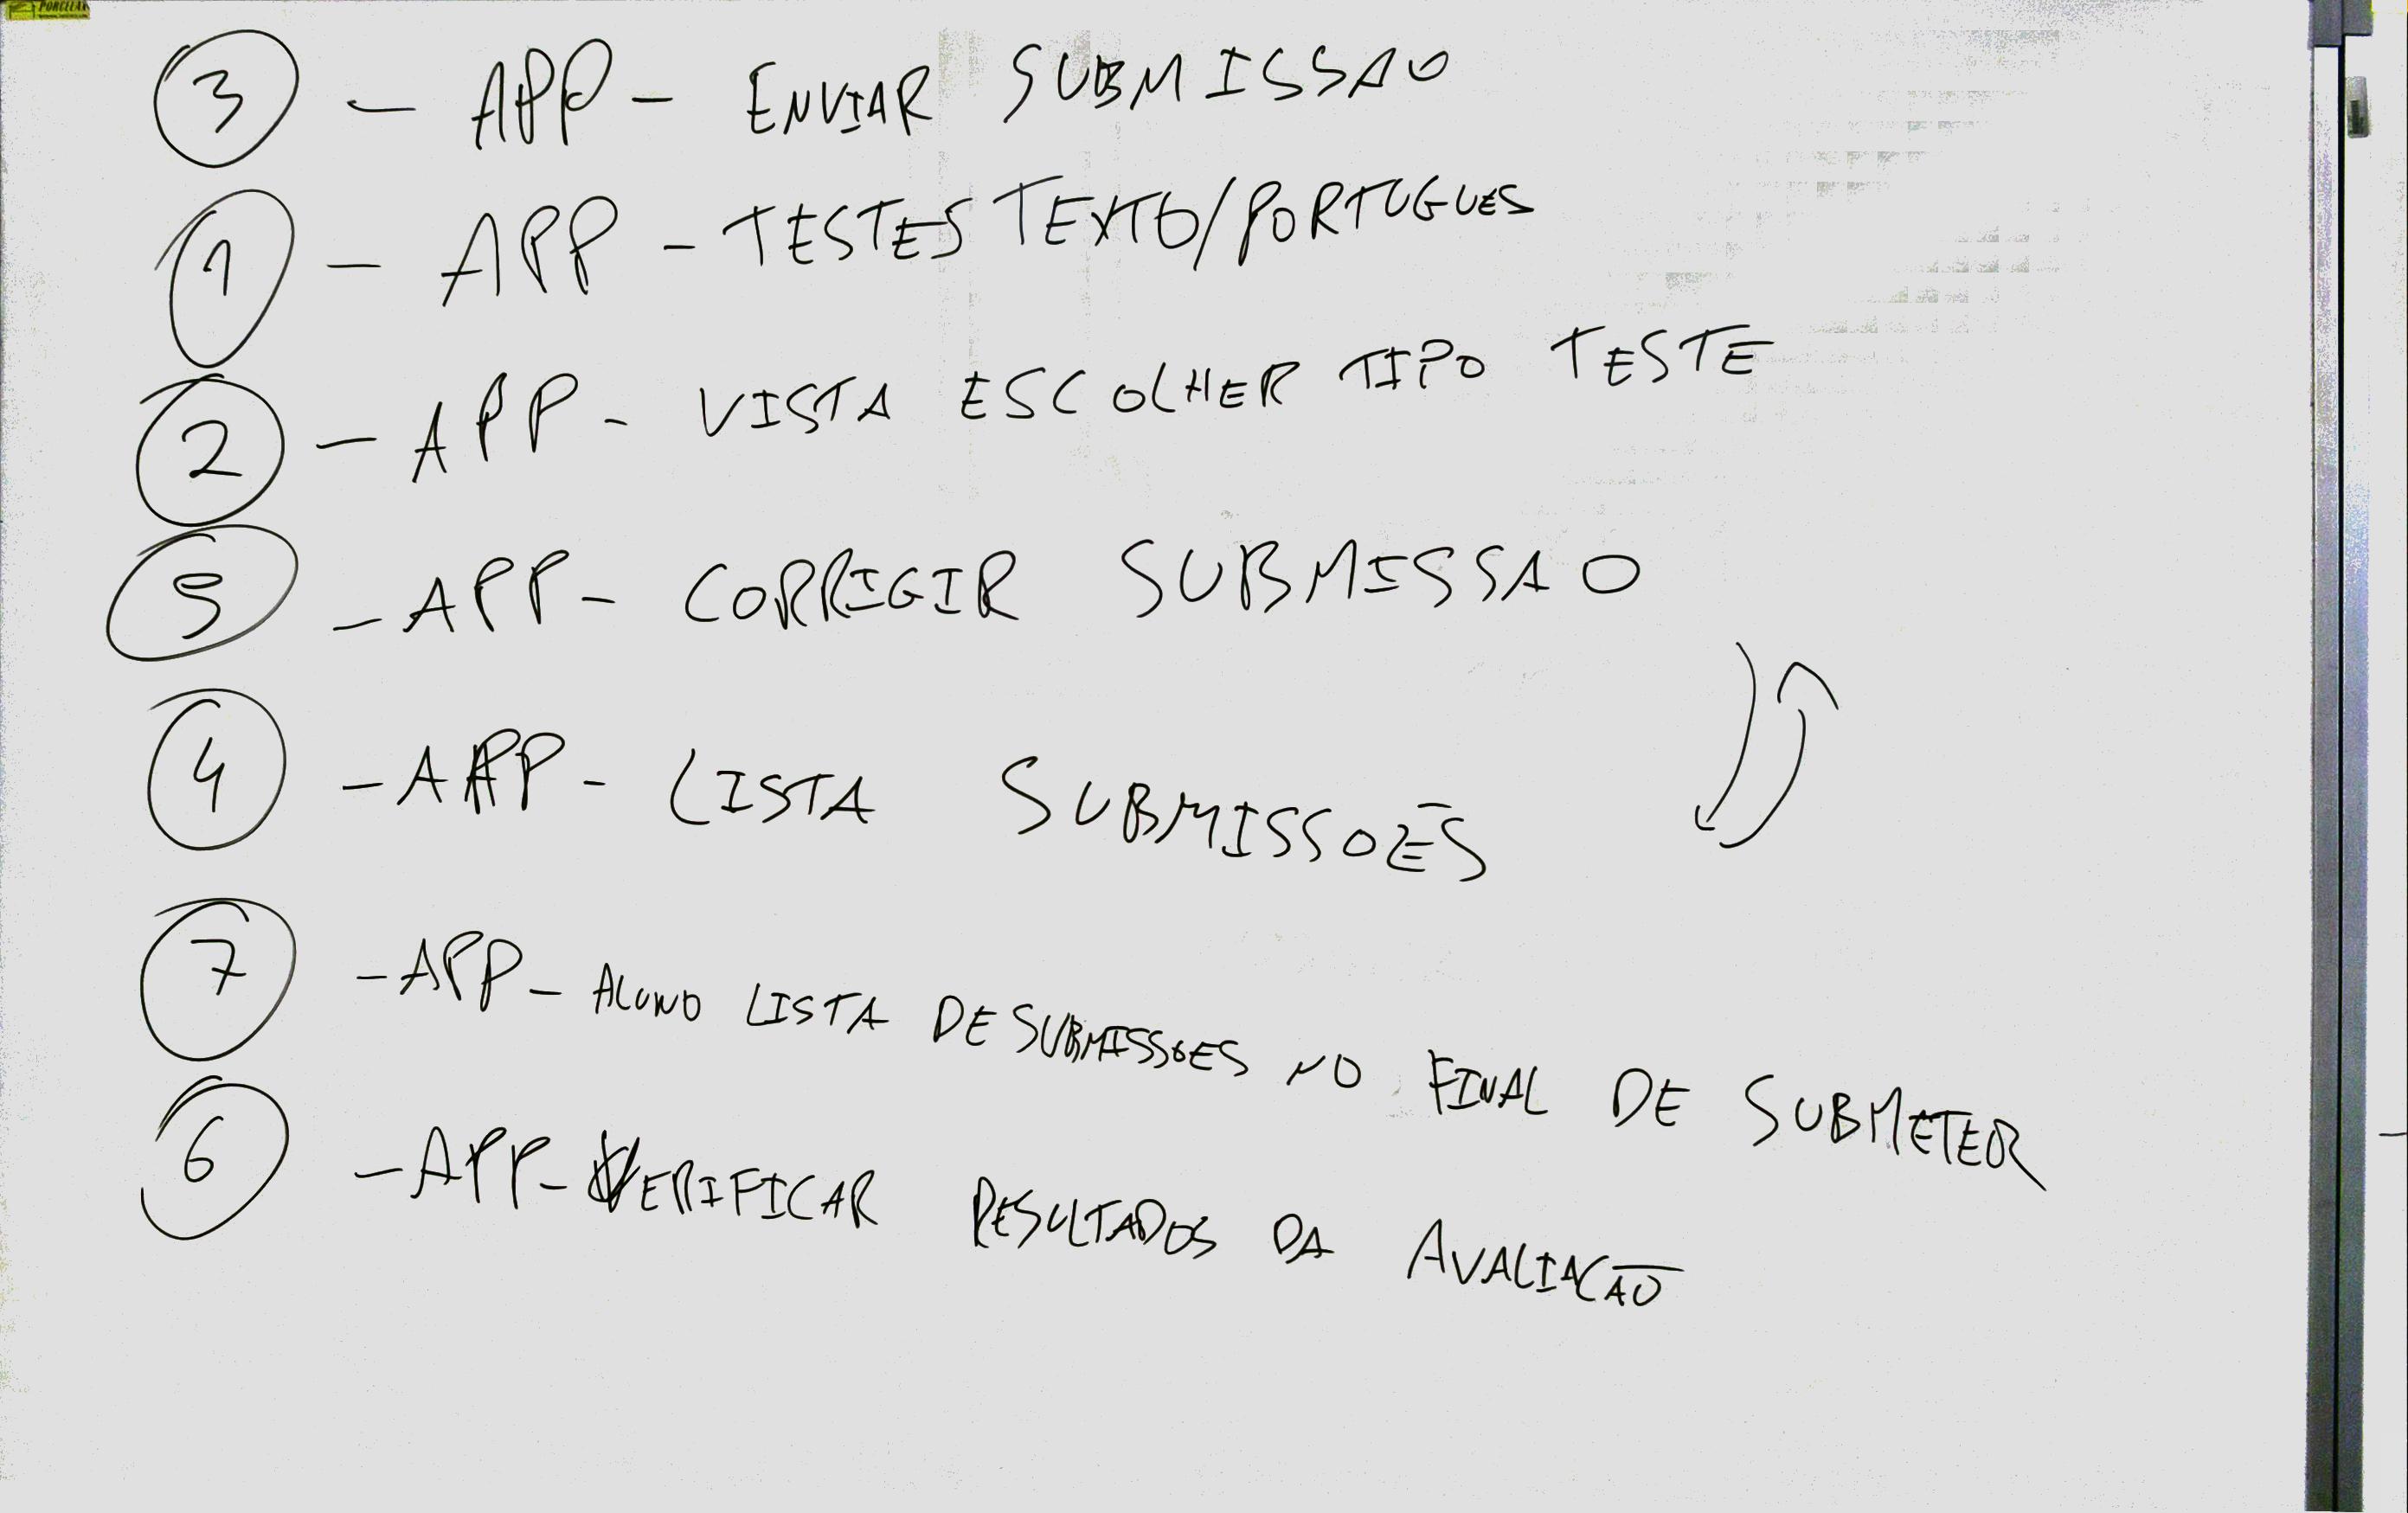 PORCELAN
3 - APP - ENVIAR SUBMISSAO
1 - APP - TESTES TEXTO/PORTUGUES
2 - APP - VISTA ESCOLHER TIPO TESTE
5 - APP - CORRIGIR SUBMISSAO
4 - APP - LISTA SUBMISSOES
7 - APP - ALUNO LISTA DE SUBMISSOES NO FINAL DE SUBMETER
6 - APP - VERIFICAR RESULTADOS DA AVALIAÇÃO